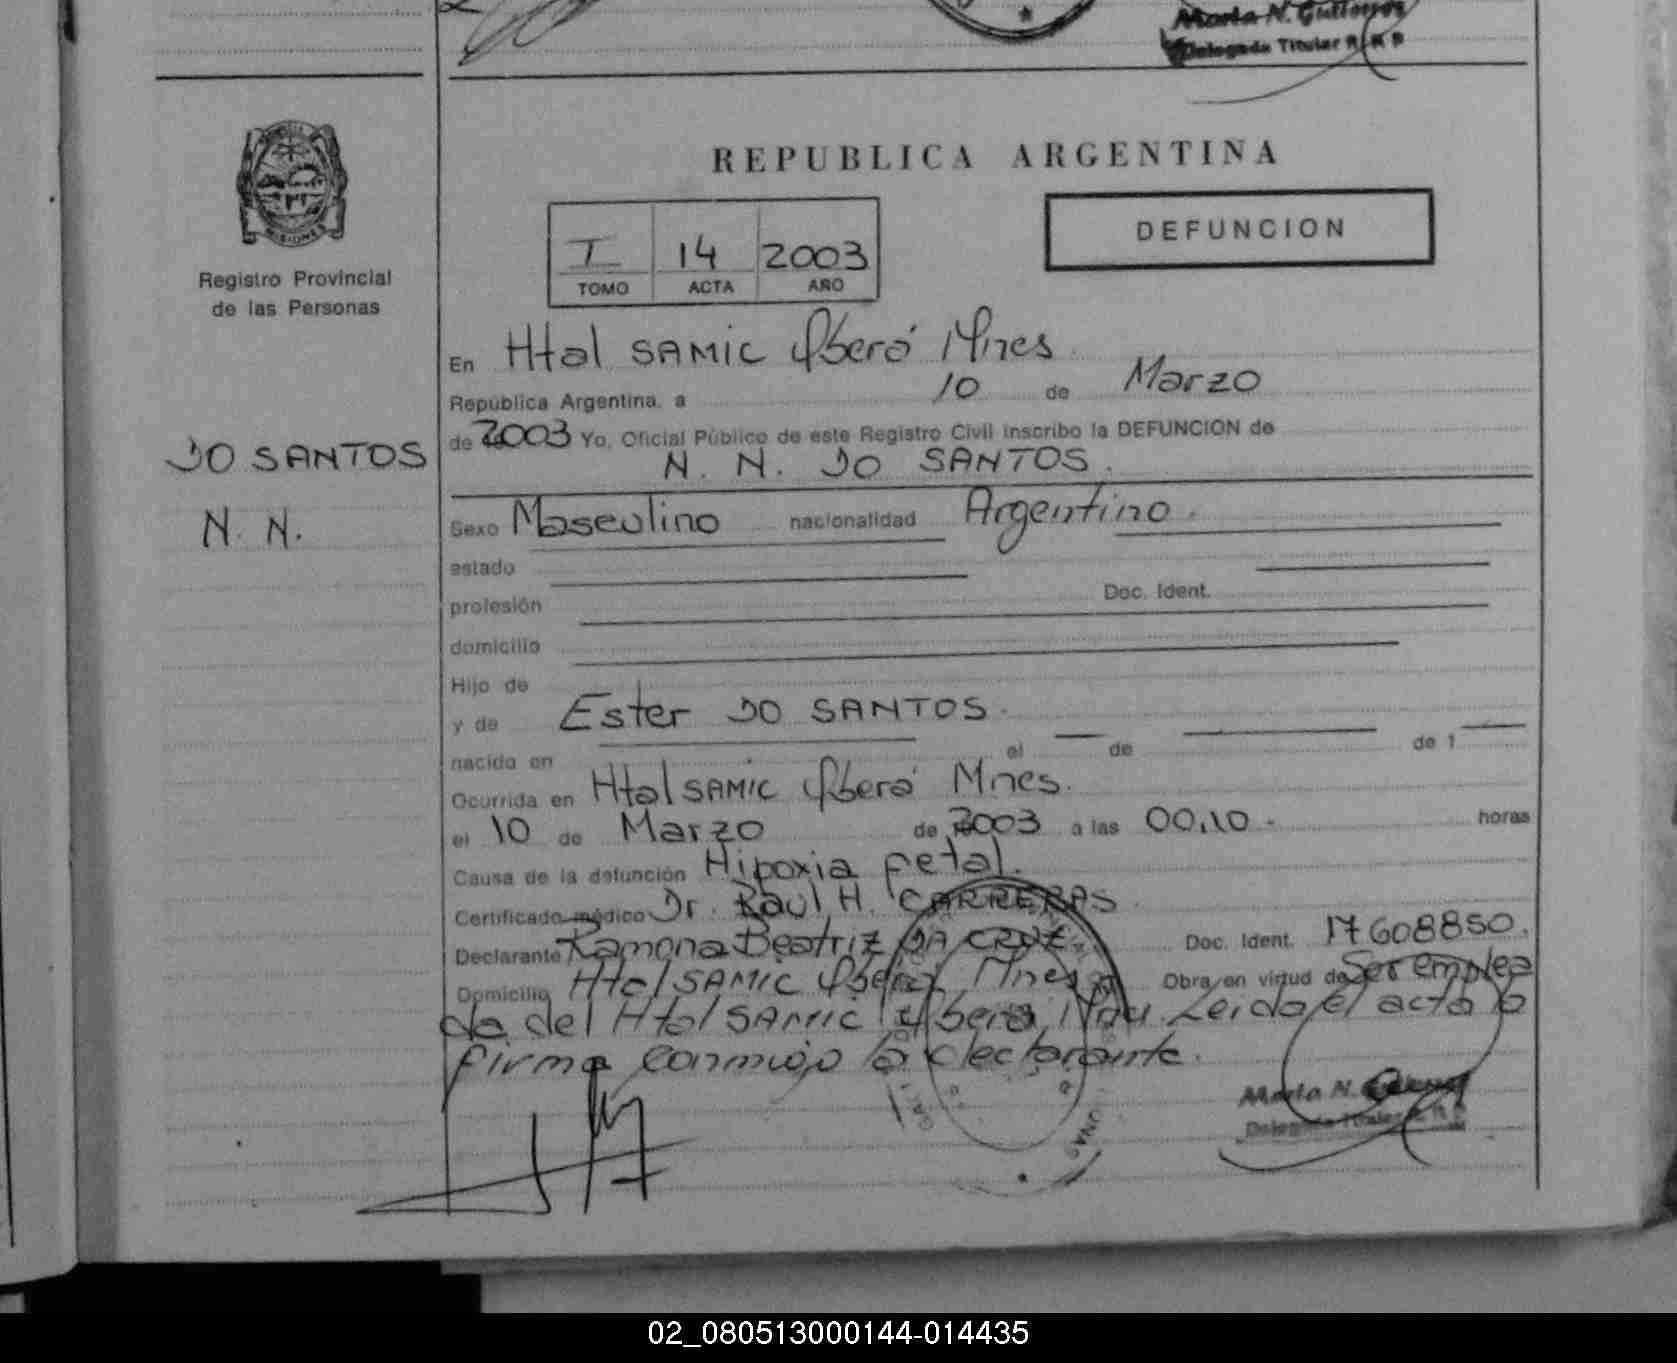 Marta N. Gutierrez
Delegada Titular R. P. P.
REPUBLICA ARGENTINA
MISIONES
Registro Provincial
de las Personas
I 14 2003
TOMO ACTA AÑO
DEFUNCION
En Htal SAMIC Oberá Mnes
República Argentina, a 10 de Marzo
de 2003 Yo, Oficial Público de este Registro Civil inscribo la DEFUNCION de
N. N. DO SANTOS.
DO SANTOS
N. N.
Sexo Masculino nacionalidad Argentino.
estado
profesión Doc. Ident.
domicilio
Hijo de
y de Ester DO SANTOS.
nacido en el de de 1
Ocurrida en Htal SAMIC Oberá Mnes.
el 10 de Marzo de 2003 a las 00,10 - horas
Causa de la defunción Hipoxia fetal.
Certificado médico Dr. Raul H. CARRERAS.
Declarante Ramona Beatriz DA CRUZ Doc. Ident. 17608850.
Domicilio Htal SAMIC Oberá Mnes Obra en virtud de Ser emplea
da del Htal SAMIC Oberá Leida el acta la
firma conmigo la declarante.
Marta N.
Delegada Titular
02_080513000144-014435